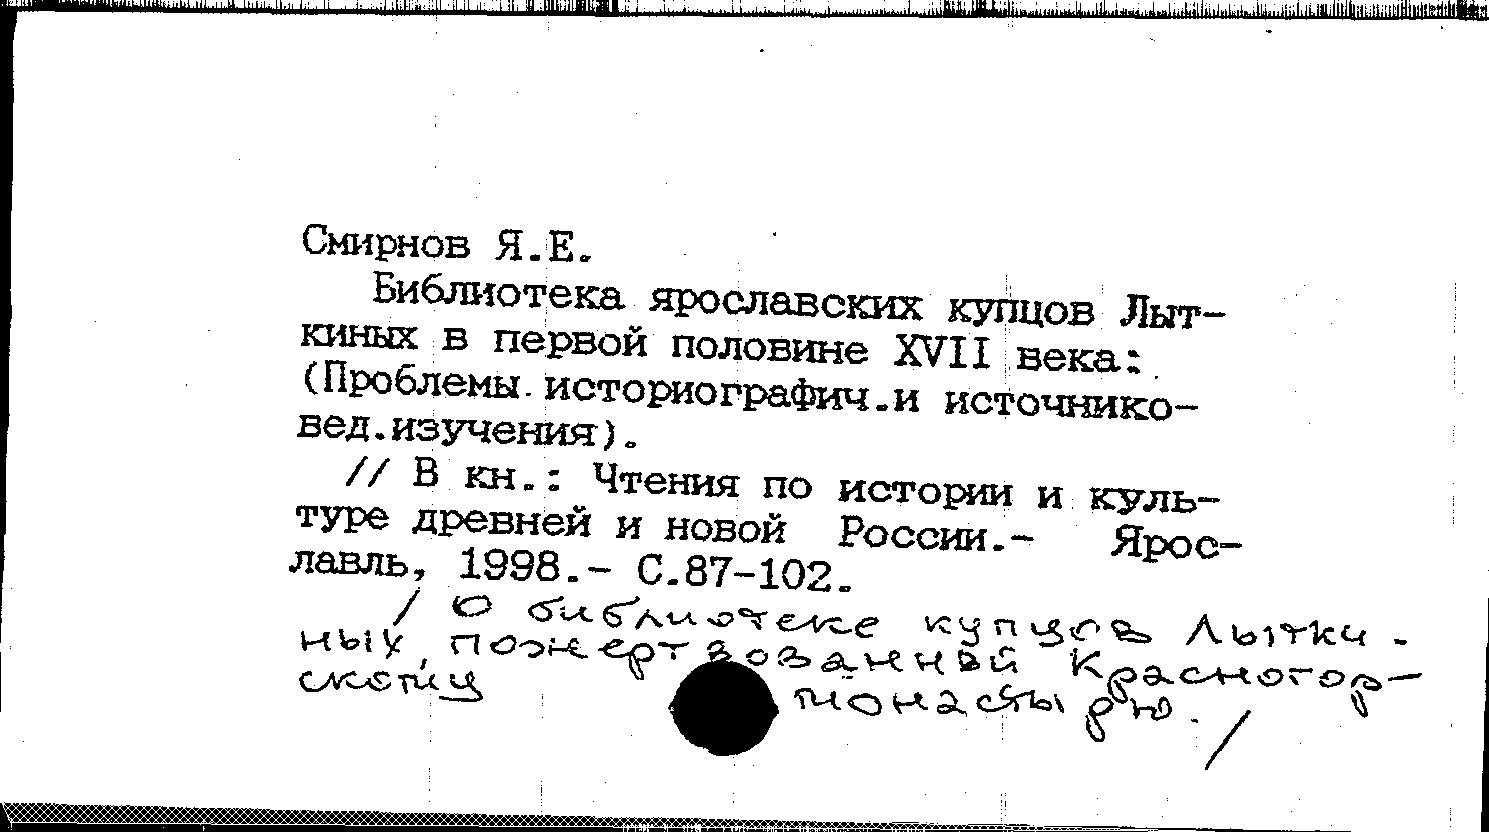 Смирнов Я.Е.
Библиотека ярославских купцов Лыт-
киных в первой половине XVII века:
(Проблемы историографич.и источнико-
вед.изучения).
// В кн.: Чтения по истории и куль-
туре древней и новой России.- Ярос-
лавль, 1998.- С.87-102.
/ О библиотеке купцов Лытки-
ных, пожертвованной Красногор-
скому монастырю. /